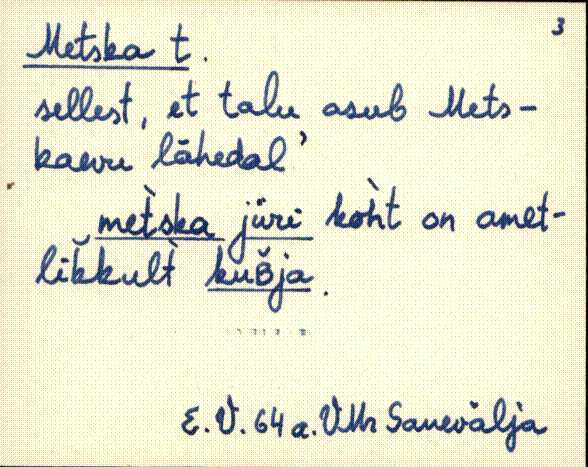 3
Metska t.
sellest, et talu asub Mets-
kaevu lähedal'
met̀ska jüri koh̀t on amet-
lik̆kult̀ kuʙ̆ja.
E.V. 64 a. VMr Sanevälja